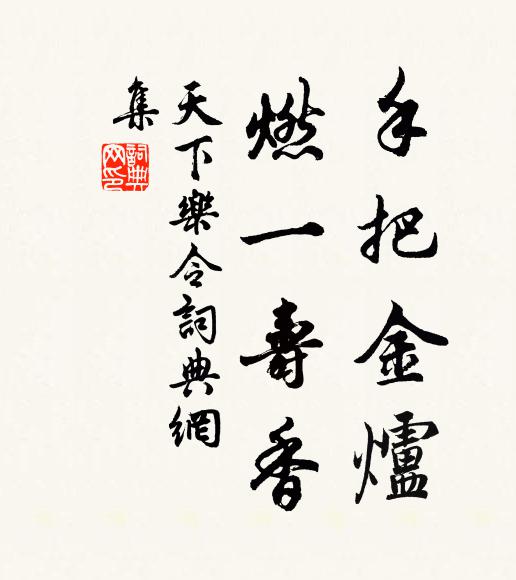 手把金爐
燃一壽香
天下樂令詞典網
集
詞典
网印